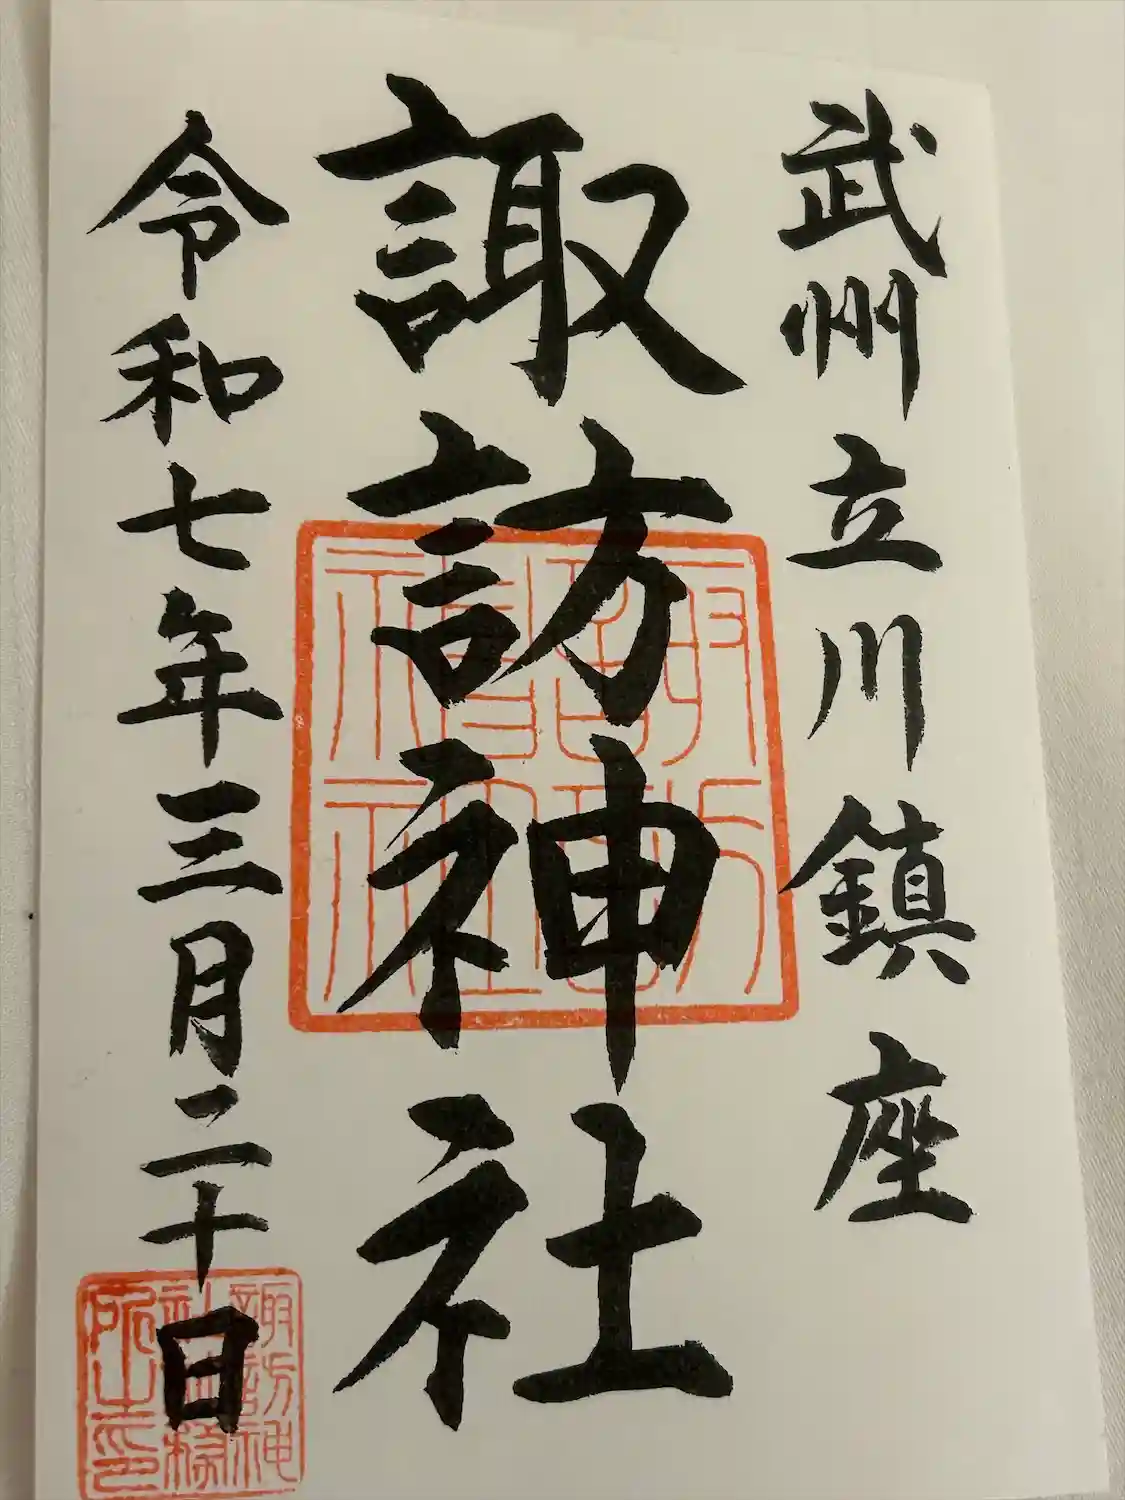 武州立川鎮座
諏訪神社
令和七年三月二十日
諏訪神社
諏訪神